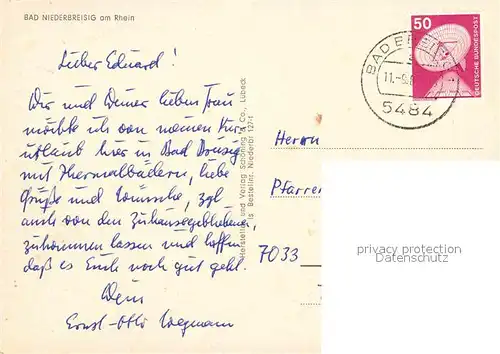 BAD NIEDERBREISIG am Rhein
50
DEUTSCHE BUNDESPOST
BAD BREISIG
11.-9.
5484
Lieber Eduard!
Dir und Deiner lieben Frau
möchte ich von meinem Kur-
urlaub hier in Bad Breisig
mit Thermalbädern, liebe
Grüße und Wünsche, zgl.
auch von den Zuhausegebliebenen,
zukommen lassen und hoffen,
daß es Euch noch gut geht.
Dein
Ernst-Otto Wegmann
Herstellung und Verlag Schöning & Co., Lübeck
Bestellnr. Niederbr 127 t
Herrn
Pfarrer
7033
privacy protection
Datenschutz